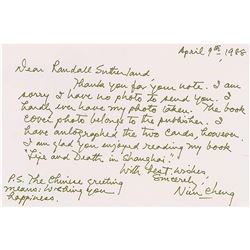 April 9th, 1988
Dear Randall Sutherland
Thank you for your note. I am
sorry I have no photo to send you. I
hardly ever have my photo taken. The book
cover photo belongs to the publisher. I
have autographed the two cards, however.
I am glad you enjoyed reading my book
"Life and Death in Shanghai."
With best wishes,
Sincerely,
Nien Cheng
P.S. The Chinese greeting
means: Wishing you
happiness.